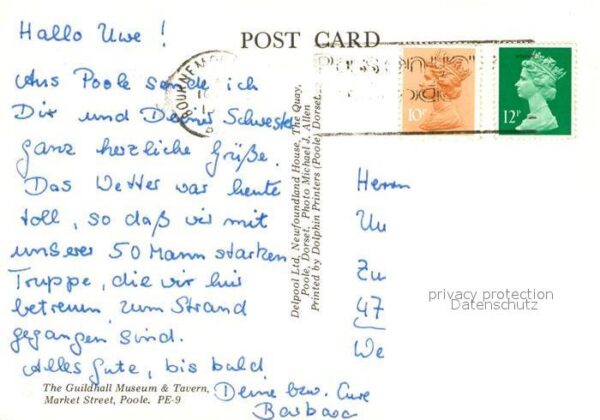 Hallo Uwe!
POST CARD
BOURNEMO
10P
12P
Aus Poole sende ich
Dir und Deiner Schwester
ganz herzliche Grüße.
Das Wetter war heute
toll, so daß wir mit
unserer 50 Mann starken
Truppe, die wir hier
betreuen, zum Strand
gegangen sind.
Alles Gute, bis bald
Deine bzw. Eure
Barbara
The Guildhall Museum & Tavern,
Market Street, Poole. PE-9
Delpool Ltd, Newfoundland House, The Quay,
Poole, Dorset. Photo Michael J. Allen
Printed by Dolphin Printers (Poole) Dorset.
Herrn
Zu
47
We
privacy protection
Datenschutz